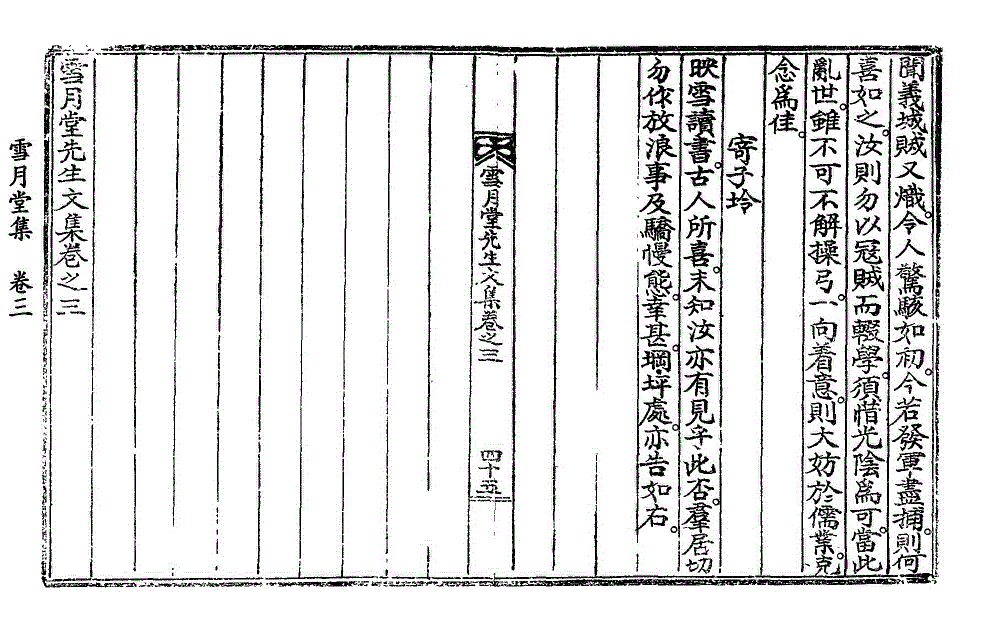 聞義城賊又熾。令人驚駭如初。今若發軍盡捕。則何
喜如之。汝則勿以冦賊而輟學。須惜光陰爲可。當此
亂世。雖不可不解操弓。一向着意。則大妨於儒業。克
念爲佳。
寄子坽
映雪讀書。古人所喜。未知汝亦有見乎此否。羣居切
勿作放浪事及驕慢態。幸甚。堈坪處。亦告如右。
雪月堂先生文集卷之三
四十五
雪月堂先生文集卷之三
雪月堂集 卷三